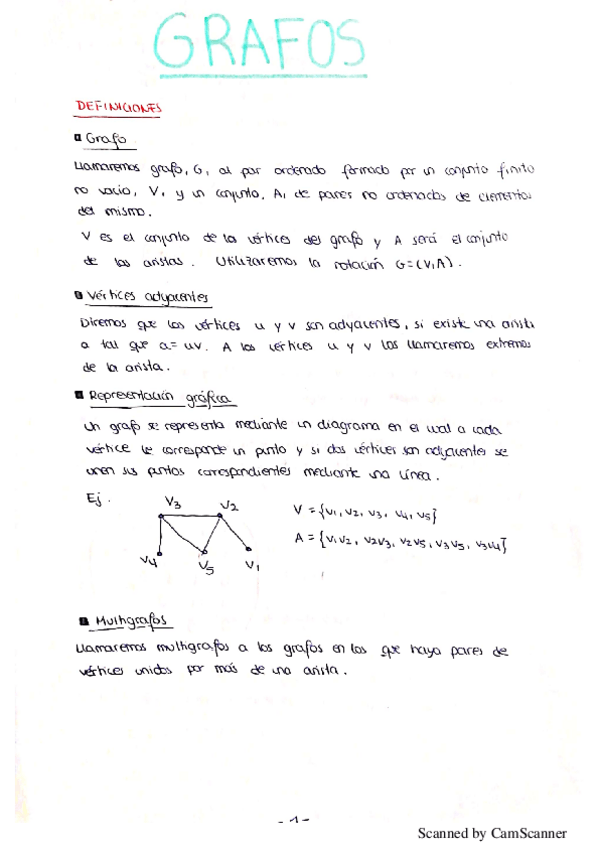 GRAFOS
DEFINICIONES
Grafo
Llamaremos grafo, G, al par ordenado formado por un conjunto finito
no vacío, V, y un conjunto, A, de pares no ordenados de elementos
del mismo.
V es el conjunto de los vértices del grafo y A será el conjunto
de las aristas. Utilizaremos la notación G=(V,A).
Vértices adyacentes
Diremos que los vértices u y v son adyacentes, si existe una arista
a tal que a= uv. A los vértices u y v los llamaremos extremos
de la arista.
Representación gráfica
Un grafo se representa mediante un diagrama en el cual a cada
vértice le corresponde un punto y si dos vértices son adyacentes se
unen sus puntos correspondientes mediante una línea.
Ej.
V3 V2
V4 V5 V1
V = {v1, v2, v3, v4, v5}
A = {v1v2, v2v3, v2v5, v3v5, v3v4}
Multigrafos
Llamaremos multigrafos a los grafos en los que haya pares de
vértices unidos por más de una arista.
-1-
Scanned by CamScanner